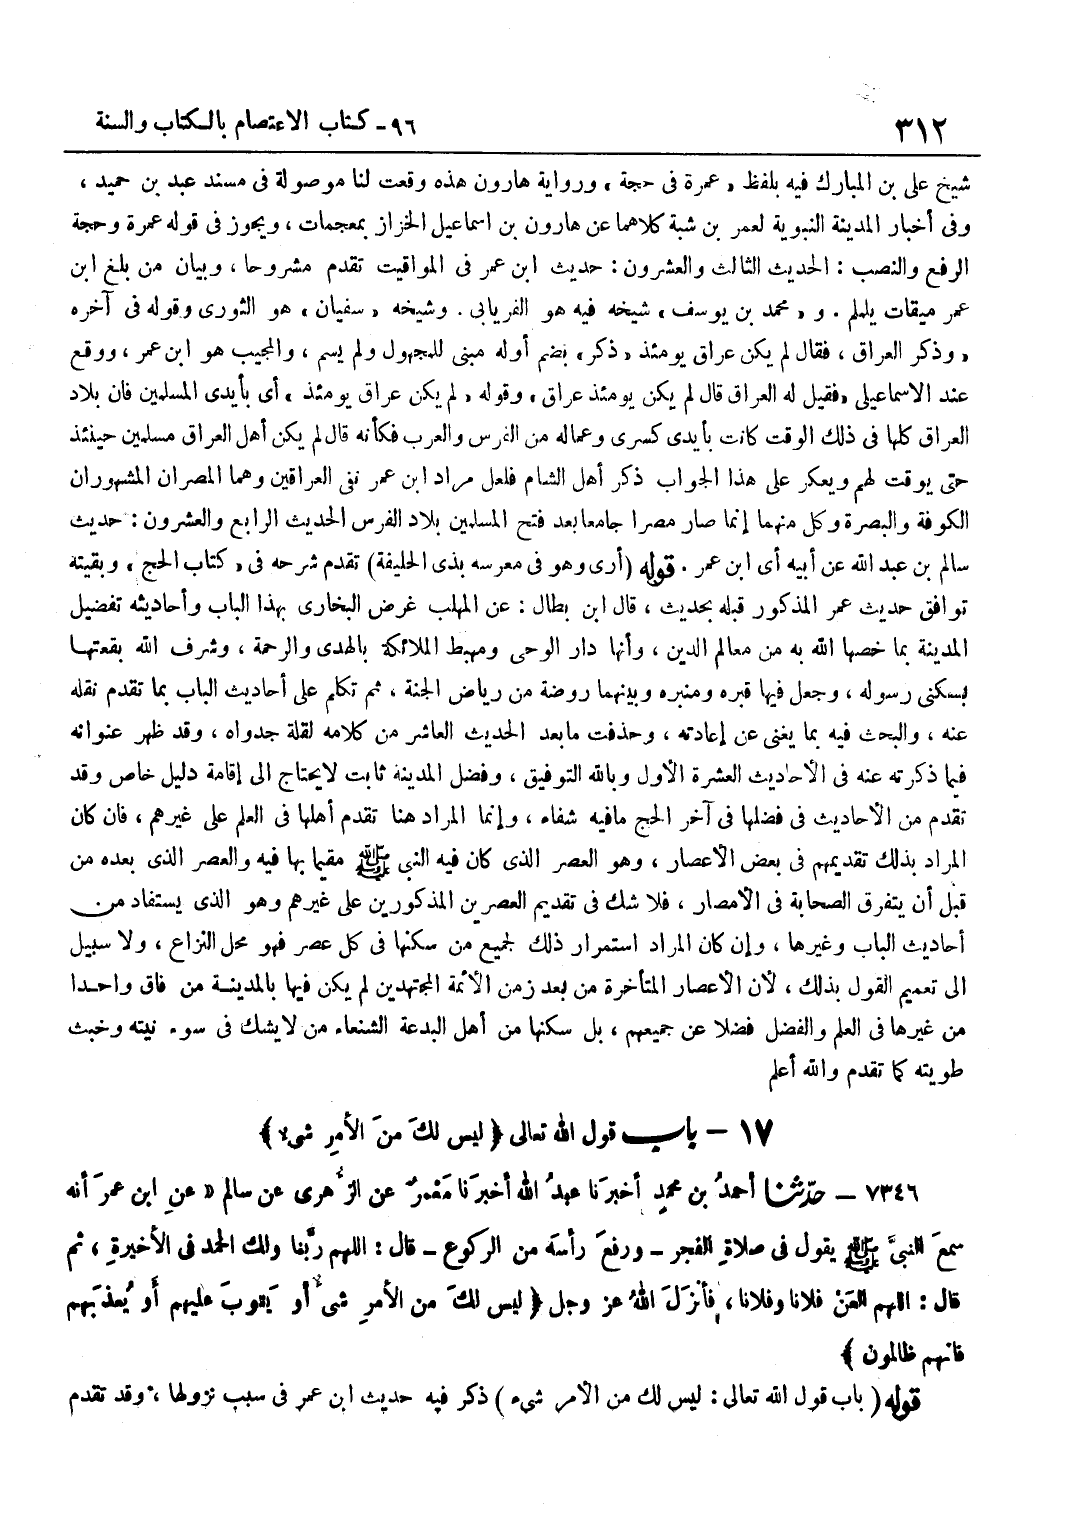 ٣١٢
٩٦- كتاب الاعتصام بالكتاب والسنة
شيخ على بن المبارك فيه بلفظ « عمرة فى حجة » ورواية هارون هذه وقعت لنا موصولة فى مسند عبد بن حميد ،
وفى أخبار المدينة النبوية لعمر بن شبة كلاهما عن هارون بن اسماعيل الخزاز بمعجمات ، ويجوز فى قوله عمرة وحجة
الرفع والنصب : الحديث الثالث والعشرون : حديث ابن عمر فى المواقيت تقدم مشروحا ، وبيان من بلغ ابن
عمر ميقات يلملم . و « محمد بن يوسف » شيخه فيه هو الفريابي . وشيخه « سفيان » هو الثورى وقوله فى آخره
« وذكر العراق ، فقال لم يكن عراق يومئذ « ذكر » بضم أوله مبنى للمجهول ولم يسم ، والمجيب هو ابن عمر ، ووقع
عند الاسماعيلى «فقيل له العراق قال لم يكن يومئذ عراق » وقوله « لم يكن عراق يومئذ » أى بأيدى المسلمين فان بلاد
العراق كلها فى ذلك الوقت كانت بأيدى كسرى وعماله من الفرس والعرب فكأنه قال لم يكن أهل العراق مسلمين حينئذ
حتى يوقت لهم ويعكر على هذا الجواب ذكر أهل الشام فلعل مراد ابن عمر نفى العراقين وهما المصران المشهوران
الكوفة والبصرة وكل منهما إنما صار مصرا جامعا بعد فتح المسلمين بلاد الفرس الحديث الرابع والعشرون : حديث
سالم بن عبد الله عن أبيه أى ابن عمر . قوله (أرى وهو فى معرسه بذى الحليفة) تقدم شرحه فى « كتاب الحج » وبقيته
توافق حديث عمر المذكور قبله بحديث ، قال ابن بطال : عن المهلب غرض البخارى بهذا الباب وأحاديثه تفضيل
المدينة بما خصها الله به من معالم الدين ، وأنها دار الوحى ومهبط الملائكة بالهدى والرحمة ، وشرف الله بقعتها
بسكنى رسوله ، وجعل فيها قبره ومنبره وبينهما روضة من رياض الجنة ، ثم تكلم على أحاديث الباب بما تقدم نقله
عنه ، والبحث فيه بما يغنى عن إعادته ، وحذفت مابعد الحديث العاشر من كلامه لقلة جدواه ، وقد ظهر عنوانه
فيما ذكرته عنه فى الأحاديث العشرة الأول وبالله التوفيق ، وفضل المدينة ثابت لايحتاج الى إقامة دليل خاص وقد
تقدم من الأحاديث فى فضلها فى آخر الحج مافيه شفاء ، وإنما المراد هنا تقدم أهلها فى العلم على غيرهم ، فان كان
المراد بذلك تقديمهم فى بعض الأعصار ، وهو العصر الذى كان فيه النبى ﷺ مقيما بها فيه والعصر الذى بعده من
قبل أن يتفرق الصحابة فى الأمصار ، فلا شك فى تقديم العصرين المذكورين على غيرهم وهو الذى يستفاد من
أحاديث الباب وغيرها ، وإن كان المراد استمرار ذلك لجميع من سكنها فى كل عصر فهو محل النزاع ، ولا سبيل
الى تعميم القول بذلك ، لأن الأعصار المتأخرة من بعد زمن الأئمة المجتهدين لم يكن فيها بالمدينة من فاق واحدا
من غيرها فى العلم والفضل فضلا عن جميعهم ، بل سكنها من أهل البدعة الشنعاء من لايشك فى سوء نيته وخبث
طويته كما تقدم والله أعلم
١٧ - باب قول الله تعالى ﴿ ليس لكَ منَ الأمرِ شىء ﴾
٧٣٤٦ - حدّثنا أحمدُ بن محمدٍ أخبرَنا عبدُ الله أخبرَنا مَعْمرٌ عن الزُّهرى عن سالم « عن ابن عمرَ أنه
سمعَ النبىَّ ﷺ يقول فى صلاةِ الفجر - ورفعَ رأسَه من الركوع - قال : اللهم ربَّنا ولك الحمد فى الأخيرةِ ، ثم
قال : اللهم العَنْ فلانا وفلانا ، فأنزَلَ اللهُ عز وجل ﴿ ليس لكَ من الأمرِ شىءٌ أو يَتوبَ عليهم أو يُعذبَهم
فانهم ظالمون ﴾
قوله ( باب قول الله تعالى : ليس لك من الأمر شيء ) ذكر فيه حديث ابن عمر فى سبب نزولها ، وقد تقدم